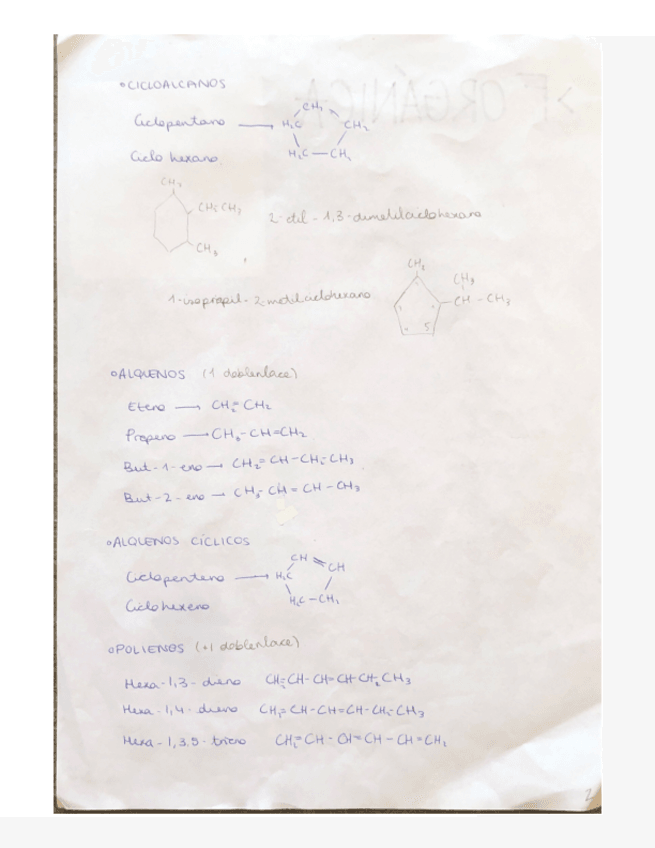 °CICLOALCANOS
Ciclopentano → CH₂ H₂C CH₂ H₂C — CH₂
Ciclo hexano
CH₃
CH₂ CH₃
2-etil-1,3-dimetilciclohexano
CH₃
CH₃
CH₃
1-isopropil-2-metilciclohexano
CH – CH₃
5
°ALQUENOS (1 doblenlace)
Eteno → CH₂=CH₂
Propeno → CH₃-CH=CH₂
But-1-eno → CH₂=CH-CH₂-CH₃
But-2-eno → CH₃-CH=CH-CH₃
°ALQUENOS CÍCLICOS
CH = CH
Ciclopenteno → H₂C
Ciclohexeno
H₂C – CH₂
°POLIENOS (+1 doblenlace)
Hexa-1,3-dieno CH₂=CH-CH=CH-CH₂CH₃
Hexa-1,4-dieno CH₂=CH-CH=CH-CH₂-CH₃
Hexa-1,3,5-trieno CH₂=CH-CH=CH-CH=CH₂
2